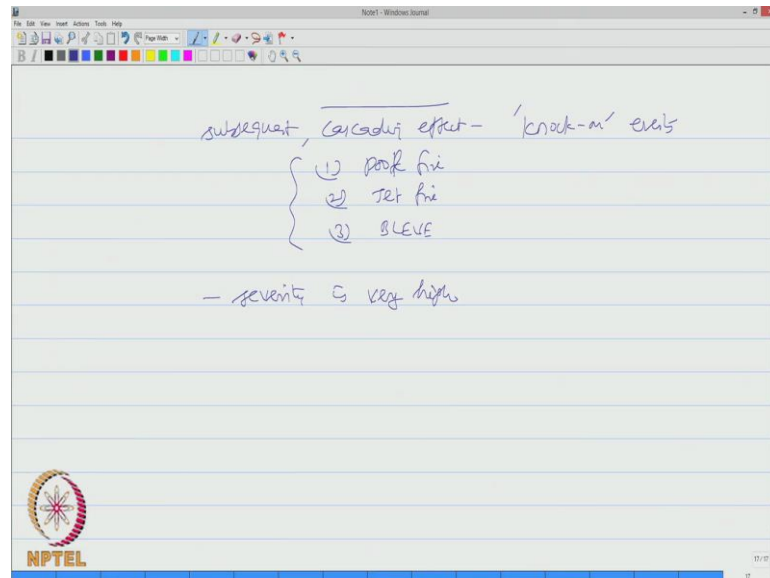 Note1 - Windows Journal
File Edit View Insert Actions Tools Help
Page Width
B I
subsequent, cascading effect - 'knock-on' events
(1) pool fire
(2) Jet fire
(3) BLEVE
- severity is very high
NPTEL
17/17
17